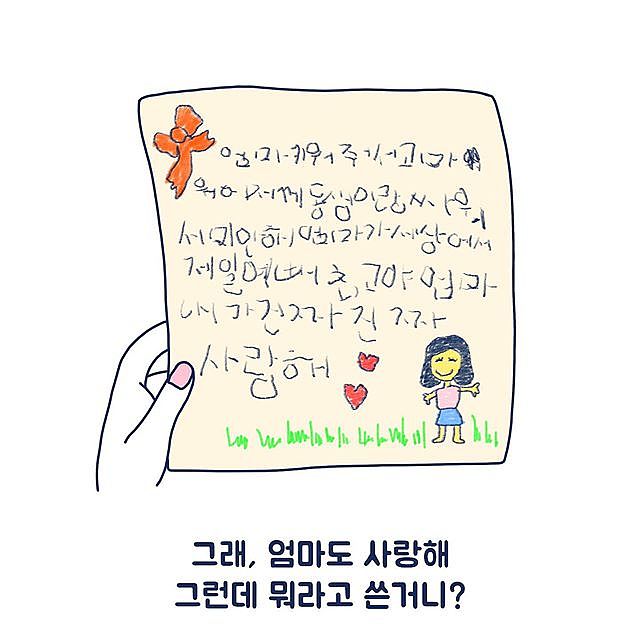 엄마 키워주셔서 고마
워 어제께 동생이랑 싸워서
미안해 엄마가 세상에서
제일 예뻐 최고야 엄마
내가 진짜 진짜
사랑해
그래, 엄마도 사랑해
그런데 뭐라고 쓴거니?